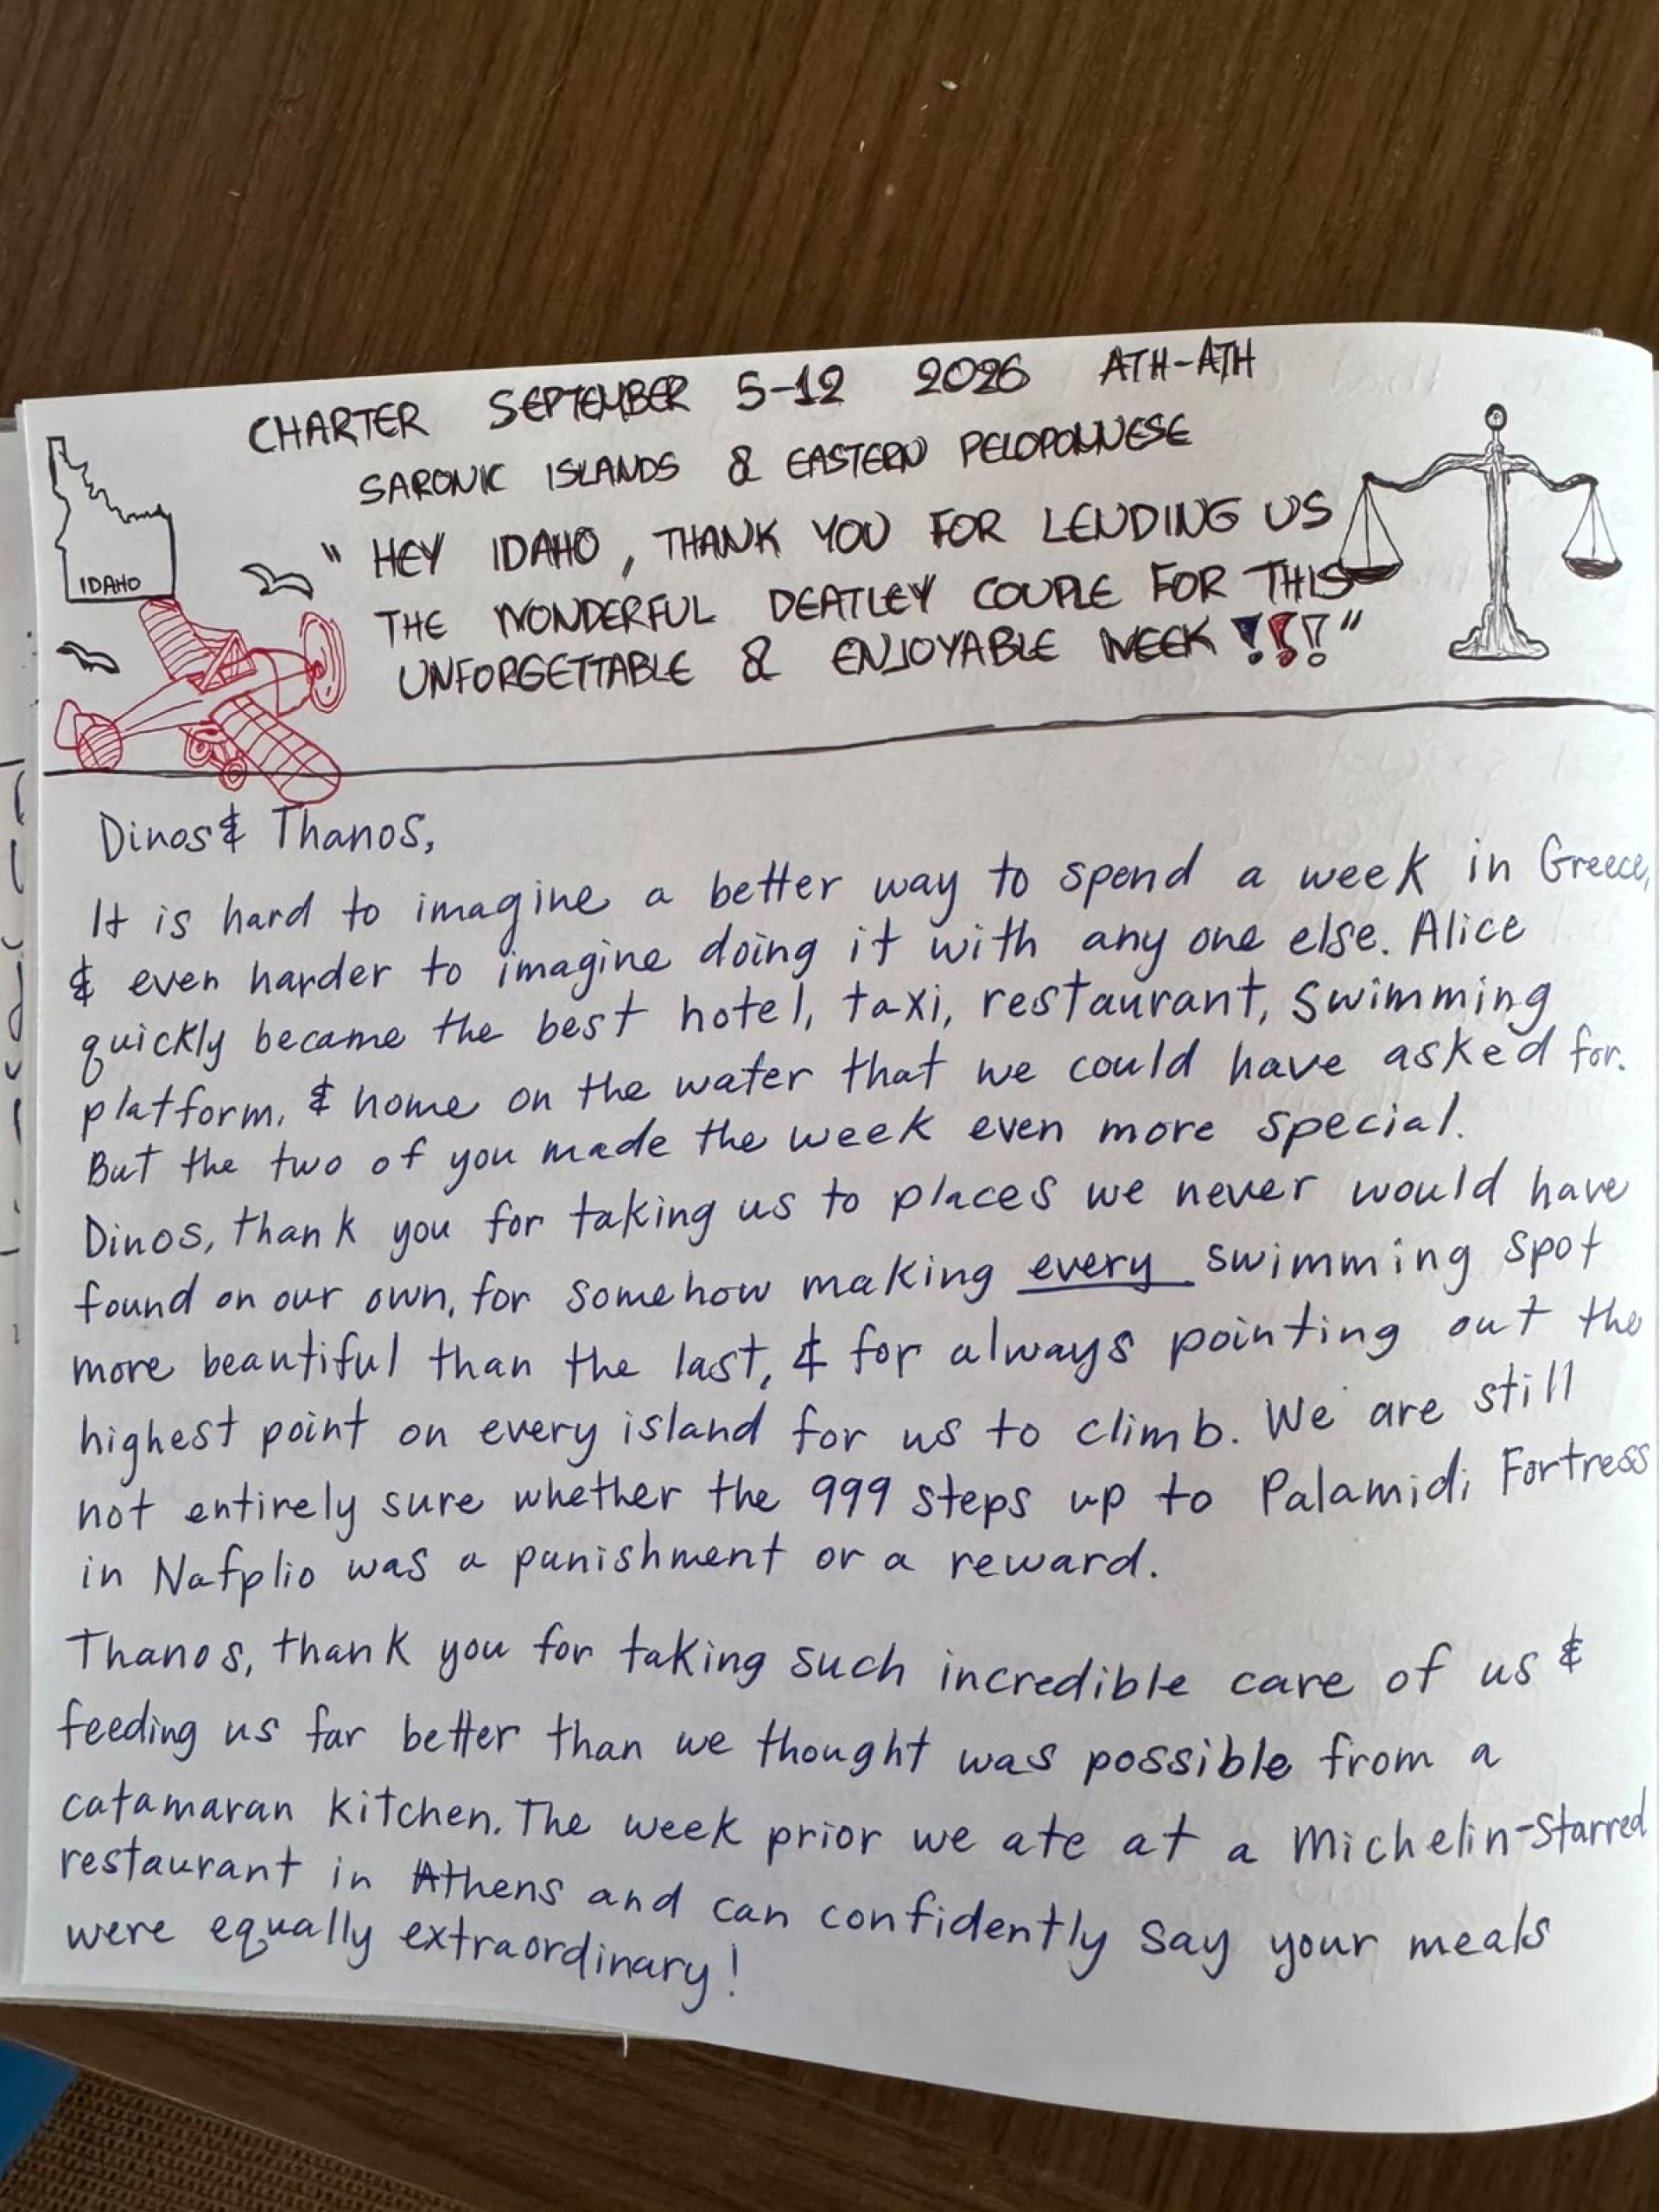 CHARTER SEPTEMBER 5-12 2026 ATH-ATH
SARONIC ISLANDS & EASTERN PELOPONNESE
" HEY IDAHO, THANK YOU FOR LENDING US
THE WONDERFUL DEATLEY COUPLE FOR THIS
UNFORGETTABLE & ENJOYABLE WEEK !!!"
IDAHO
Dinos & Thanos,
It is hard to imagine a better way to spend a week in Greece,
& even harder to imagine doing it with any one else. Alice
quickly became the best hotel, taxi, restaurant, swimming
platform, & home on the water that we could have asked for.
But the two of you made the week even more special.
Dinos, thank you for taking us to places we never would have
found on our own, for somehow making every swimming spot
more beautiful than the last, & for always pointing out the
highest point on every island for us to climb. We are still
not entirely sure whether the 999 steps up to Palamidi Fortress
in Nafplio was a punishment or a reward.
Thanos, thank you for taking such incredible care of us &
feeding us far better than we thought was possible from a
catamaran kitchen. The week prior we ate at a Michelin-Starred
restaurant in Athens and can confidently say your meals
were equally extraordinary!